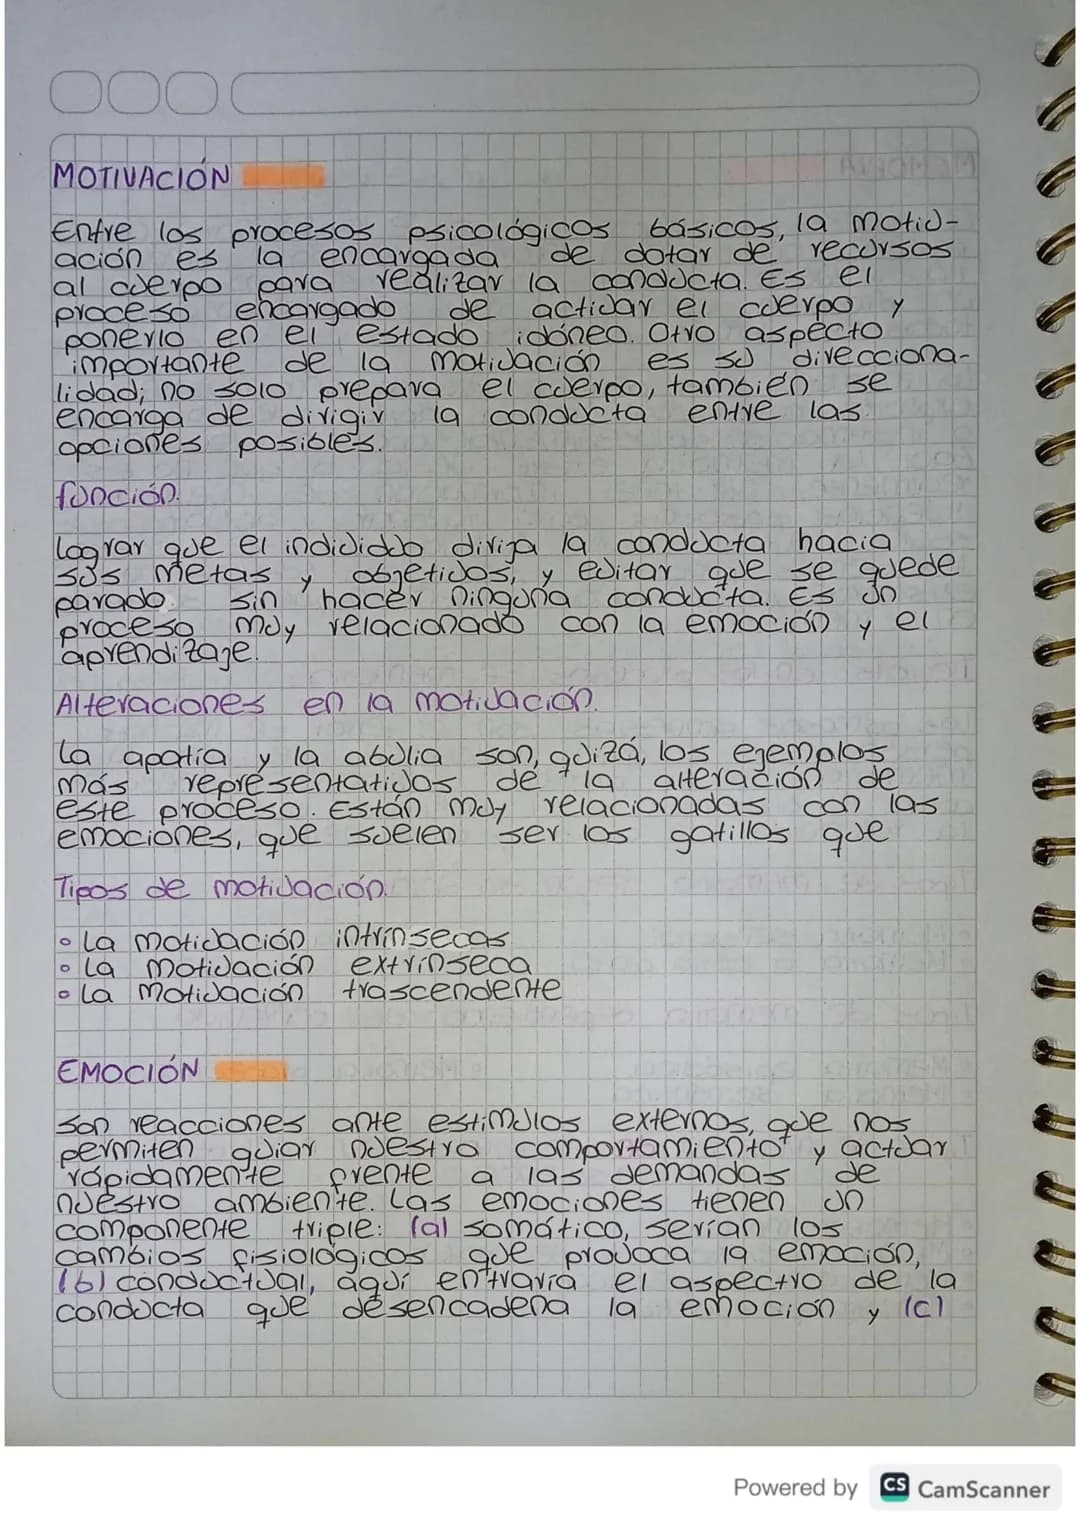 MOTIVACIÓN
Entre los procesos psicológicos básicos, la motiv-
ación es la encargada de dotar de recursos
al cuerpo para realizar la conducta. Es el
proceso encargado de activar el cuerpo y
ponerlo en el estado idóneo. Otro aspecto
importante de la motivación es su direcciona-
lidad; no solo prepara el cuerpo, también se
encarga de dirigir la conducta entre las
opciones posibles.
función.
Lograr que el individuo dirija la conducta hacia
sus metas y objetivos, y evitar que se quede
parado sin hacer ninguna conducta. Es un
proceso muy relacionado con la emoción y el
aprendizaje.
Alteraciones en la motivación.
La apatía y la abulia son, quizá, los ejemplos
más representativos de la alteración de
este proceso. Están muy relacionadas con las
emociones, que suelen ser los gatillos que
Tipos de motivación.
• La motivación intrínsecas
• La motivación extrínseca
• La motivación trascendente
EMOCIÓN
Son reacciones ante estímulos externos, que nos
permiten guiar nuestro comportamiento y actuar
rápidamente frente a las demandas de
nuestro ambiente. Las emociones tienen un
componente triple: (a) somático, serían los
cambios fisiológicos que provoca la emoción,
(b) conductual, aquí entraría el aspectro de la
conducta que desencadena la emoción y (c)
Powered by CS CamScanner